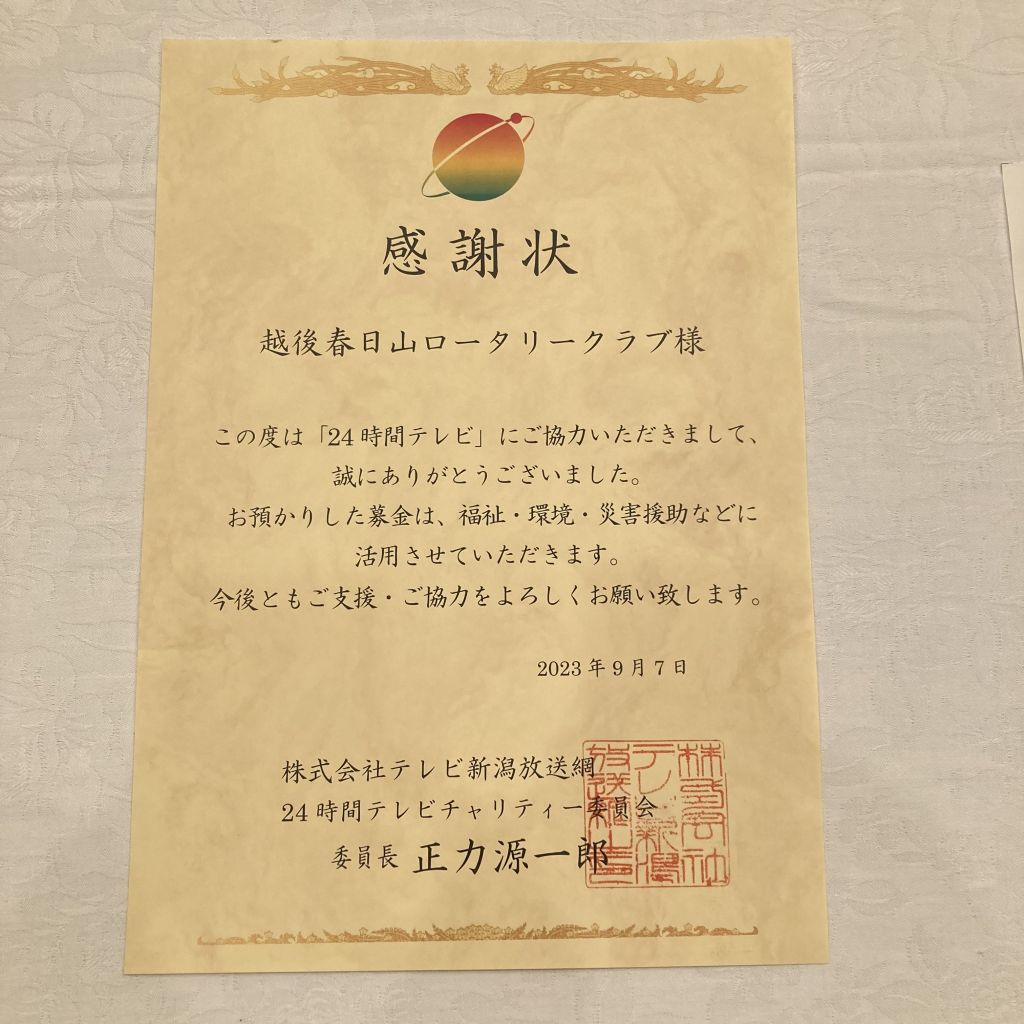 感謝状
越後春日山ロータリークラブ様
この度は「24時間テレビ」にご協力いただきまして、
誠にありがとうございました。
お預かりした募金は、福祉・環境・災害援助などに
活用させていただきます。
今後ともご支援・ご協力をよろしくお願い致します。
2023年9月7日
株式会社テレビ新潟放送網
24時間テレビチャリティー委員会
委員長 正力源一郎